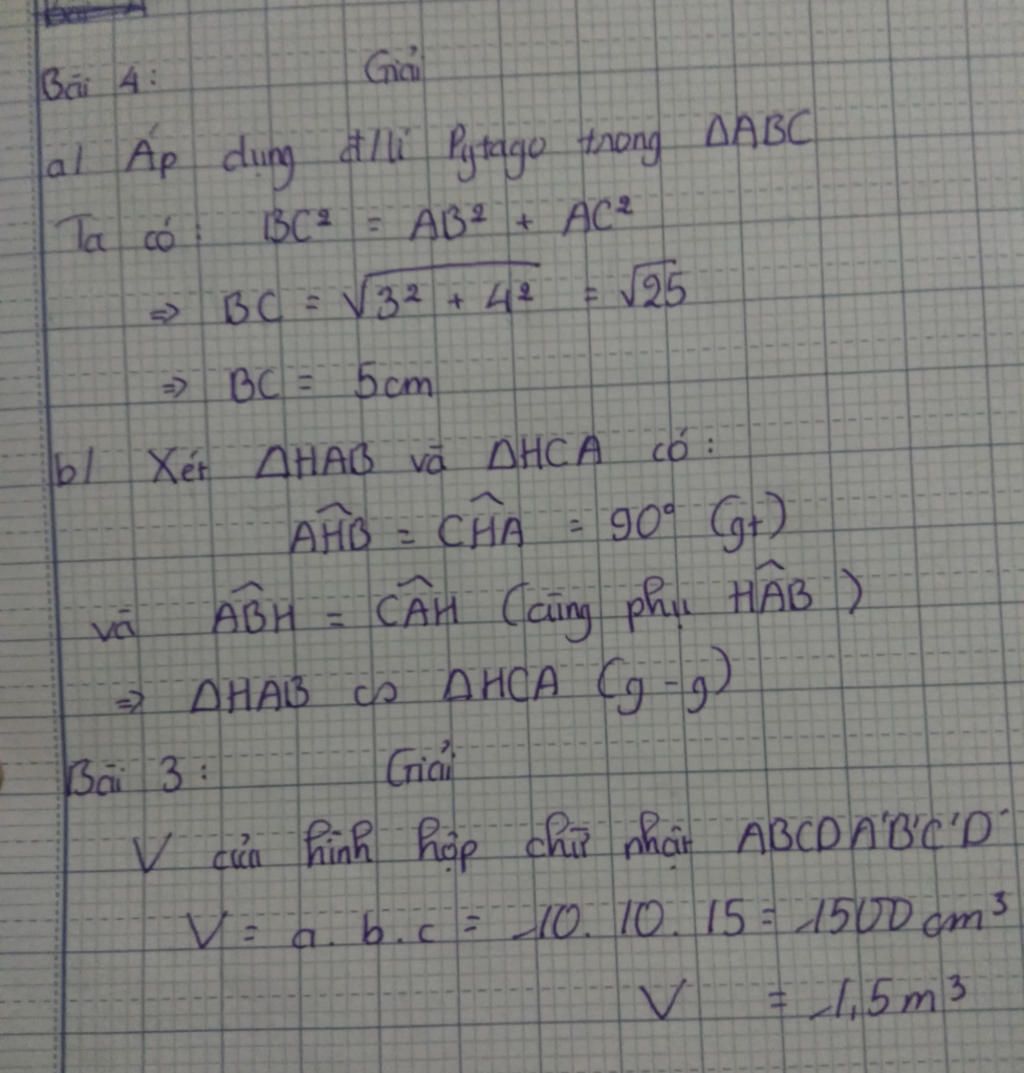 Bài 4: Giải
a/ Áp dụng đ/lí Pytago trong ΔABC
Ta có: BC² = AB² + AC²
⇒ BC = √3² + 4² = √25
⇒ BC = 5cm
b/ Xét ΔHAB và ΔHCA có:
AĤB = CĤA = 90° (gt)
và AB̂H = CÂH (cùng phụ HÂB)
⇒ ΔHAB ∽ ΔHCA (g-g)
Bài 3: Giải
V của hình hộp chữ nhật ABCDA'B'C'D'
V = a.b.c = 10.10.15 = 1500 cm³
V = 1,5m³